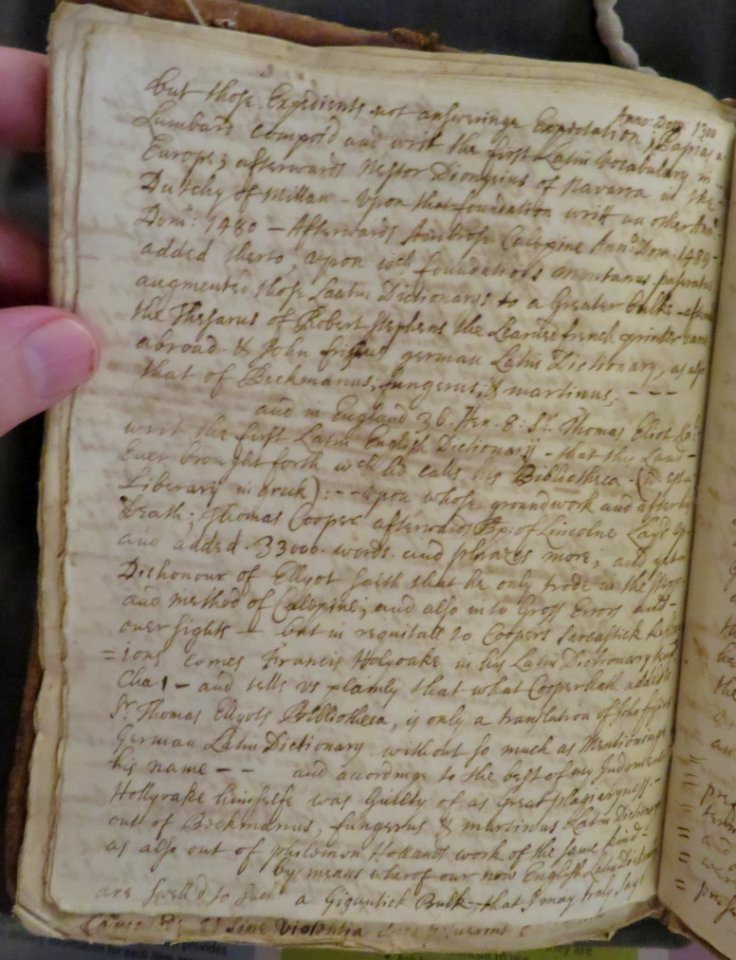 Anno: Dom: 1300
but those Expedients not answeringe Expectation, Papias a
Lumbard compos'd and writ the first Latin Vocabulary in
Europe; afterwards Nestor Dionysius of Navarra in the
Dutchy of Millan - Upon that foundation writt an other Ann°
Dom: 1480 - Afterwards Ambrose Calepine Ann° Dom: 1489-
added therto, upon wch foundations Montanus
augmented those Laatin Dictionarys to a Greater bulke -
the Thesarus of Robert Stephens the Learned french printer came
abroad. & John frisius german Latin Dictionary, as also
that of Beckmanus, fungerus, & martinus; - - -
and in England 36. Hen. 8. Sr. Thomas Eliot
writ the first Latin English Dictionary - that this Land -
Ever brought forth wch he calls his Bibliotheca - (id. est a
Liberary in breck): -- Upon whose groundwork and after his
Death; Thomas Cooper afterwards Bp: of Lincolne Lays
and added. 33000 words. and phrazes more, and yet
Dishonour of Ellyot saith that he only trode in the stepps
and method of Calepine; and also in to Gross Errors and -
oversights - but in requitall to Coopers Sarcastick
=ions comes Francis Holyoake in his Latin Dictionary
and tells us plainly that what Cooper hath added to
Sr. Thomas Ellyots Bibliotheca, is only a translation of John frisius
German Latin Dictionary without so much as Mentioninge
his name - - and accordinge to the best of my Judgment
Hollyoake himselfe was Guilty of as Great plagieryness -
out of Beckmanus, fungerus & martinus Latin Dictionarys
as also out of philemon Hollands work of the same kind -
by meanes wherof our now English Latin Dictionarys
are swell'd to such a Gigantick Bulk - that I may truly say
Sine Violentia